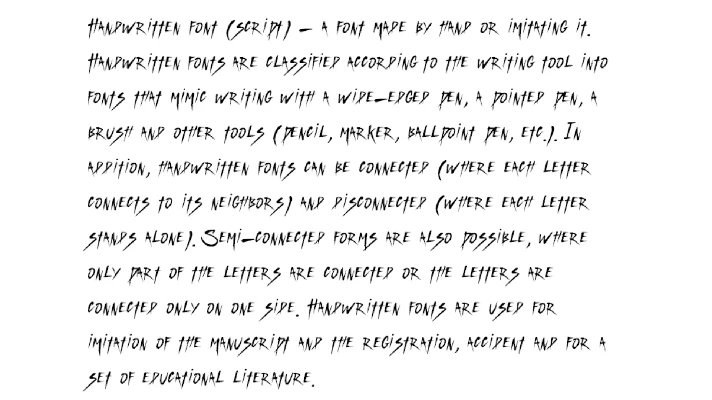 Handwritten font (script) – a font made by hand or imitating it.
Handwritten fonts are classified according to the writing tool into
fonts that mimic writing with a wide-edged pen, a pointed pen, a
brush and other tools (pencil, marker, ballpoint pen, etc.). In
addition, handwritten fonts can be connected (where each letter
connects to its neighbors) and disconnected (where each letter
stands alone). Semi-connected forms are also possible, where
only part of the letters are connected or the letters are
connected only on one side. Handwritten fonts are used for
imitation of the manuscript and the registration, accident and for a
set of educational literature.